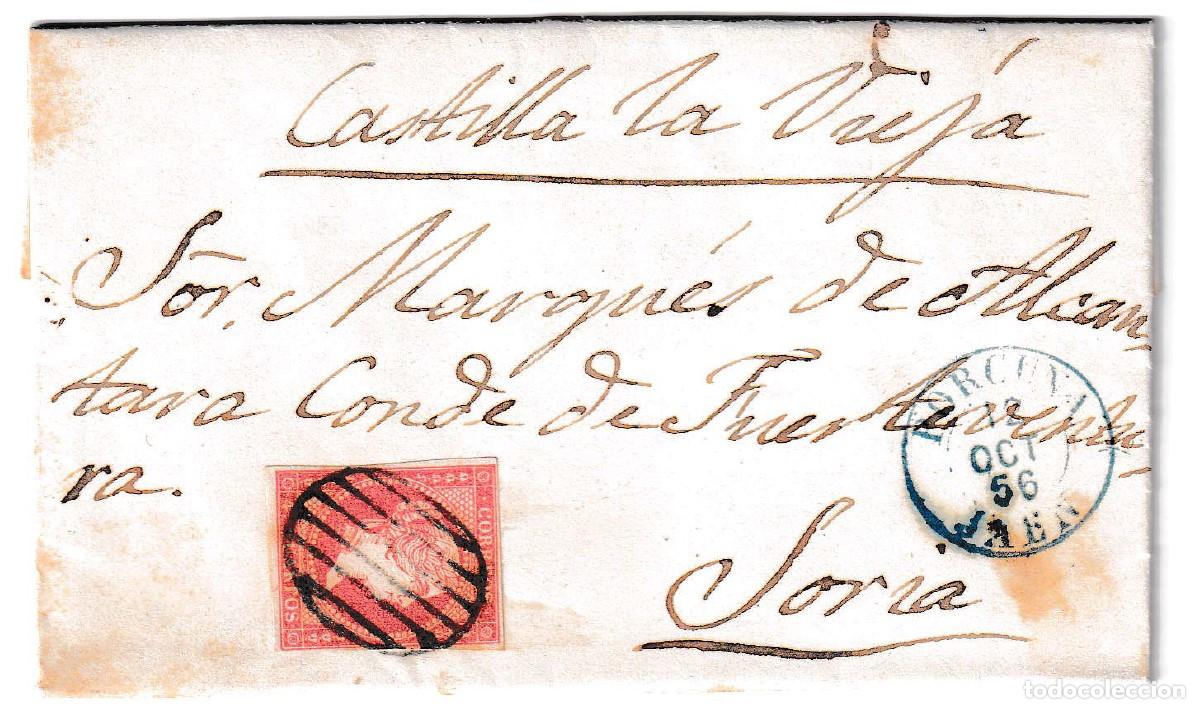 Castilla la Vieja
Sor. Marqués de Alcan-
tara Conde de Fuerteventu-
ra.
Soria
PORCUNA
12
OCT
56
JAEN
CORREOS
todocoleccion